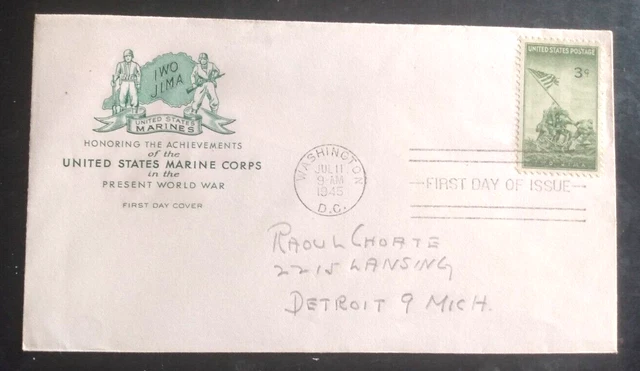 IWO
JIMA
UNITED STATES
MARINES
HONORING THE ACHIEVEMENTS
of the
UNITED STATES MARINE CORPS
in the
PRESENT WORLD WAR
FIRST DAY COVER
WASHINGTON
JUL 11
9-AM
1945
D.C.
UNITED STATES POSTAGE
3¢
FIRST DAY OF ISSUE
RAOUL CHOATE
2215 LANSING
DETROIT 9 MICH.